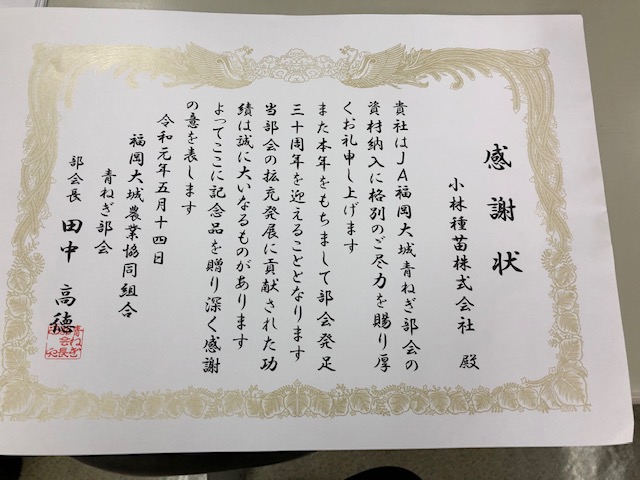 感謝状
小林種苗株式会社 殿
貴社はJA福岡大城青ねぎ部会の
資材納入に格別のご尽力を賜り厚
くお礼申し上げます
また本年をもちまして部会発足
三十周年を迎えることとなります
当部会の拡充発展に貢献された功
績は誠に大いなるものがあります
よってここに記念品を贈り深く感謝
の意を表します
令和元年五月十四日
福岡大城農業協同組合
青ねぎ部会
部会長 田中 高穂